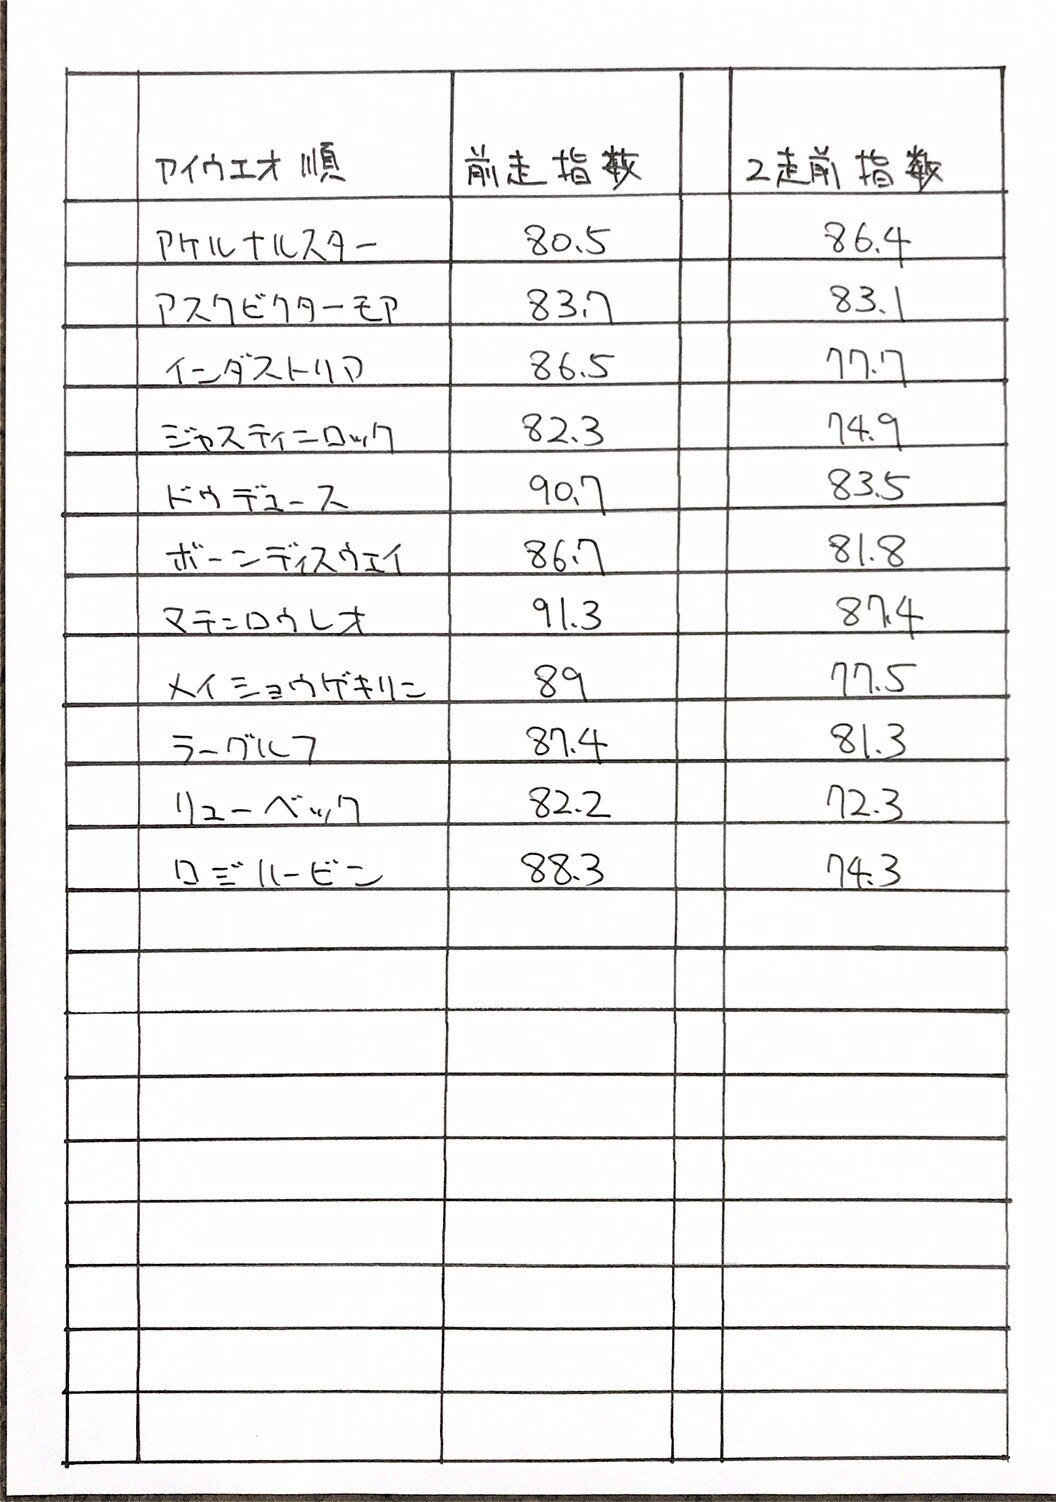 アイウエオ順 前走指数 2走前指数
アケルナルスター 80.5 86.4
アスクビクターモア 83.7 83.1
インダストリア 86.5 77.7
ジャスティンロック 82.3 74.9
ドウデュース 90.7 83.5
ボーンディスウェイ 86.7 81.8
マテンロウレオ 91.3 87.4
メイショウゲキリン 89 77.5
ラーグルフ 87.4 81.3
リューベック 82.2 72.3
ロジハービン 88.3 74.3